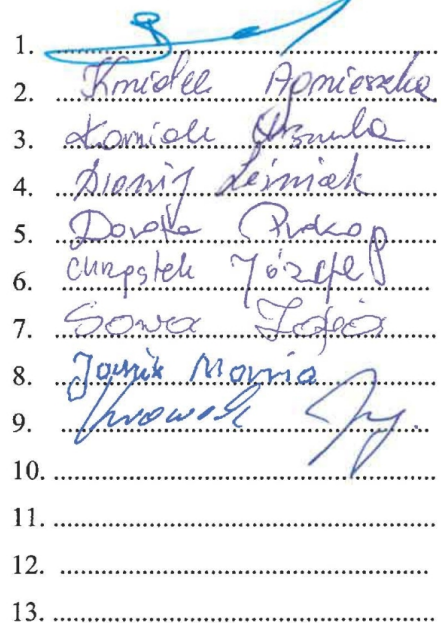 1. ..........
2. Kmiołek Agnieszka
3. Korniak Urszula
4. Dionizy Leśniak
5. Dorota Prokop
6. Chrząstek Józef
7. Sowa Zofia
8. Janik Maria
9. ..........
10. ..........
11. ..........
12. ..........
13. ..........